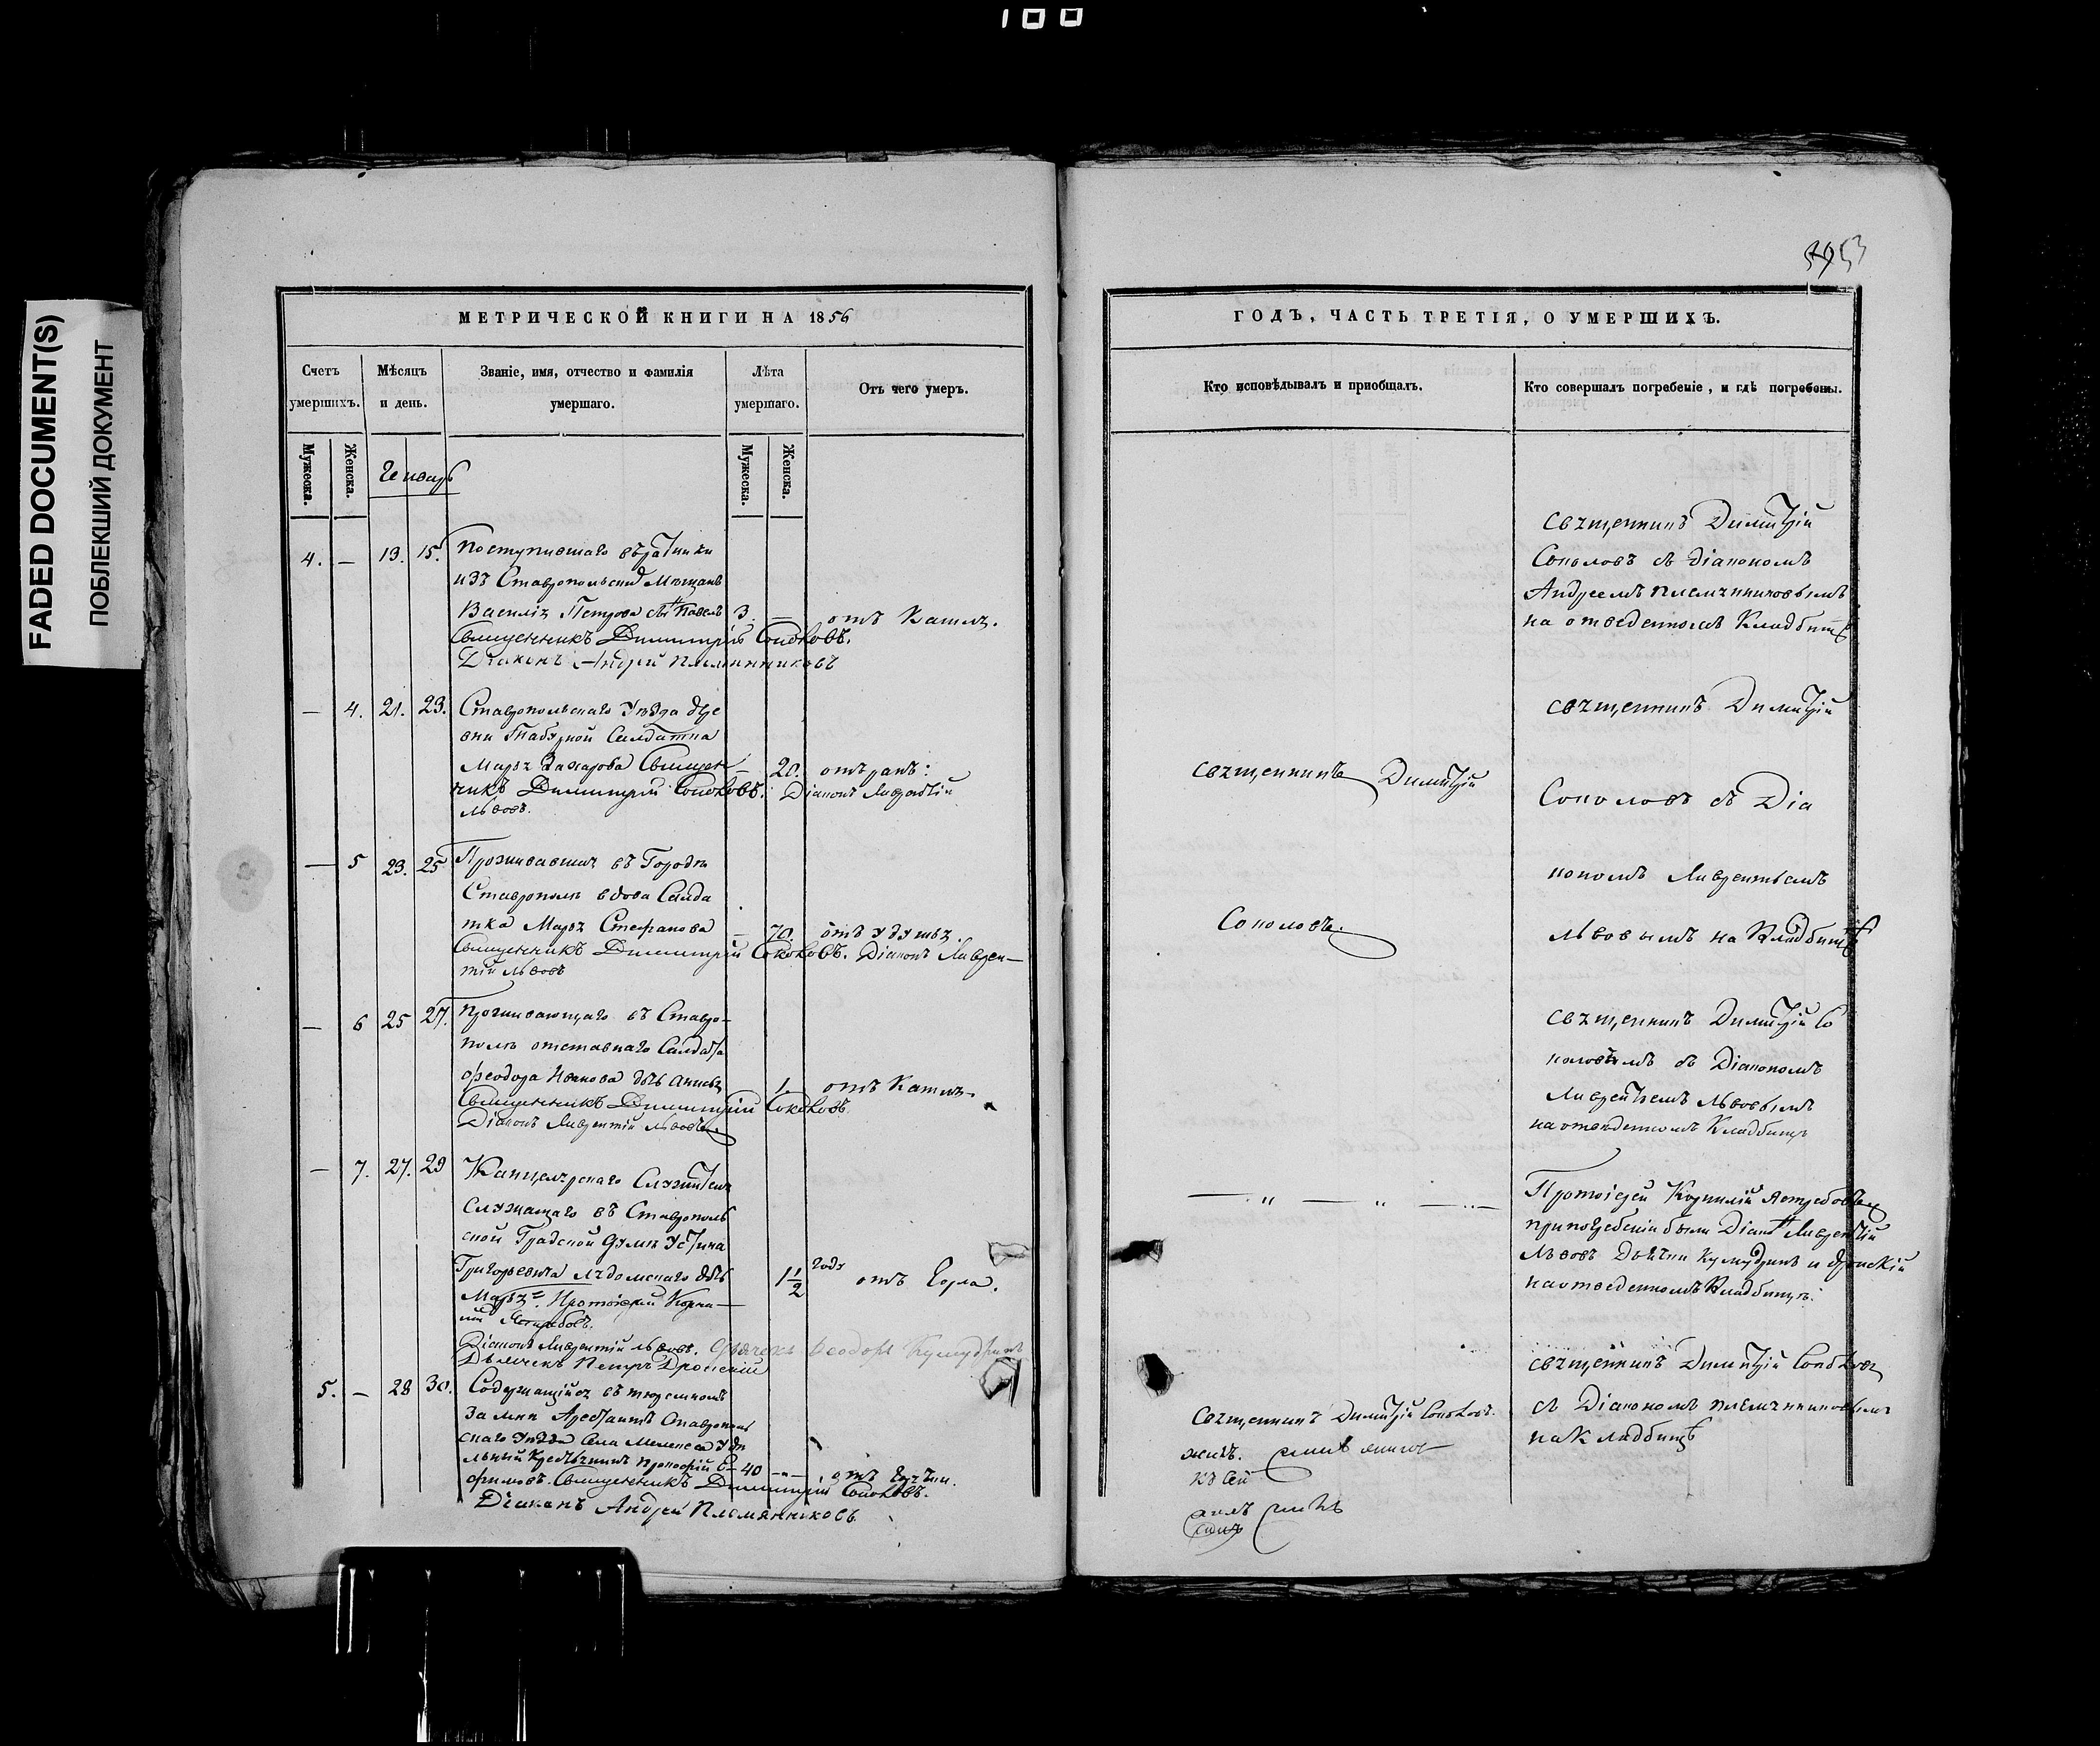 100
FADED DOCUMENT(S)
ПОБЛЕКШИЙ ДОКУМЕНТ
МЕТРИЧЕСКОЙ КНИГИ НА 1856
Счетъ умершихъ.
Мѣсяцъ и день.
Званіе, имя, отчество и фамилія умершаго.
Лѣта умершаго.
Отъ чего умеръ.
Мужеска.
Женска.
Генварь
Мужеска.
Женска.
4. — 13. 15. Поступившаго въ ратники
изъ Ставропольских Мещанъ
Василія Петрова сынъ Павелъ 3 — отъ Кашля.
Священникъ Димитрій Соколовъ.
Діаконъ Андрей Племянниковъ
— 4. 21. 23. Ставропольскаго Уѣзда дере
вни Солдатка
Марья Захарова Священ — 20. отъ ранъ:
никъ Димитрій Соколовъ. Діаконъ Лаврентій
Львовъ.
— 5 23. 25 Проживавшая въ Городѣ
Ставрополѣ вдова Салда
тка Марья Стефанова — 70. отъ удушья.
Священникъ Димитрій Соколовъ. Діаконъ Лаврен—
тій Львовъ
— 6 25 27. Проживающаго въ Ставро—
полѣ отставнаго Салдата
Феодора Иванова дочь 1. отъ Кашля.
Священникъ Димитрій Соколовъ.
Діаконъ Лаврентій Львовъ.
— 7. 27. 29 Канцелярскаго Служителя
служащаго въ Ставрополь
ской Градской Думѣ Устина
Григорьевича дочь 1 1/2 года отъ Горла.
Марья. Протоіерей Корни—
лій Ястребовъ.
Діаконъ Лаврентій Львовъ. Дьячекъ Феодоръ Кумудринъ
Дьячекъ Петръ
5. — 28 30. Содержащійся въ тюремномъ
Замкѣ Арестантъ Ставрополь
скаго Уѣзда Села Мелекеса Удѣ
льный Крестьянинъ Прокофій Е— 40 —
фимовъ. Священникъ Димитрій Соколовъ.
Діаконъ Андрей Племянниковъ.
53
ГОДЪ, ЧАСТЬ ТРЕТІЯ, О УМЕРШИХЪ.
Кто исповѣдывалъ и пріобщалъ.
Кто совершалъ погребеніе, и гдѣ погребены.
Священникъ Димитрій
Соколовъ съ Діакономъ
Андреемъ Племянниковымъ
на отведенномъ Кладбищѣ
Священникъ Димитрій
Священникъ Димитрій
Соколовъ съ Діа
кономъ Лаврентьемъ
Соколовъ.
Львовымъ на Кладбищѣ
Священникъ Димитрій Со
коловымъ съ Діакономъ
Лаврентьемъ Львовымъ
на отведенномъ Кладбищѣ
— „ — „ — „ —
Протоіерей Корнилій Ястребовъ
при погребеніи были Діаконъ Лаврентій
Львовъ Дьячки Кумудринъ и
на отведенномъ Кладбищѣ.
Священникъ Димитрій Соколовъ
Священникъ Димитрій Соколовъ.
съ Діакономъ Племянниковымъ
на Кладбищѣ